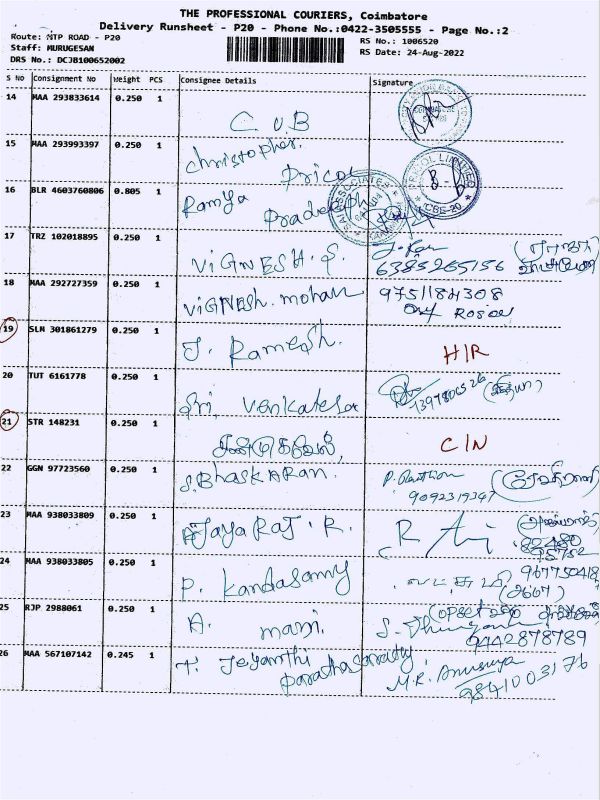 THE PROFESSIONAL COURIERS, Coimbatore
Delivery Runsheet - P20 - Phone No.:0422-3505555 - Page No.:2
Route: NTP ROAD - P20
RS No.: 1006520
Staff: MURUGESAN
RS Date: 24-Aug-2022
DRS No.: DCJB100652002
S No Consignment No Weight PCS Consignee Details Signature
14 MAA 293833614 0.250 1
C U B
15 MAA 293993397 0.250 1
Christopher.
Pricol
16 BLR 4603760806 0.805 1
Ramya
Pradeep
17 TRZ 102018895 0.250 1
ViGNESH. S.
6385265156
18 MAA 292727359 0.250 1
ViGNESh. mohan
9751184308
19 SLM 301861279 0.250 1
J. Ramesh.
H/R
20 TUT 6161778 0.250 1
Sri Venkatesa
21 STR 148231 0.250 1
சண்முகவேல்,
C/N
22 GGN 97723560 0.250 1
S. BhaskARan.
9092319347
23 MAA 938033809 0.250 1
JAYARAJ. R.
24 MAA 938033805 0.250 1
P. Kandasamy
967750418
25 RJP 2988061 0.250 1
A. mani.
9442878789
26 MAA 567107142 0.245 1
T. Jeyanthi
Parathasarathy
M.R. Anusuya
9841003176